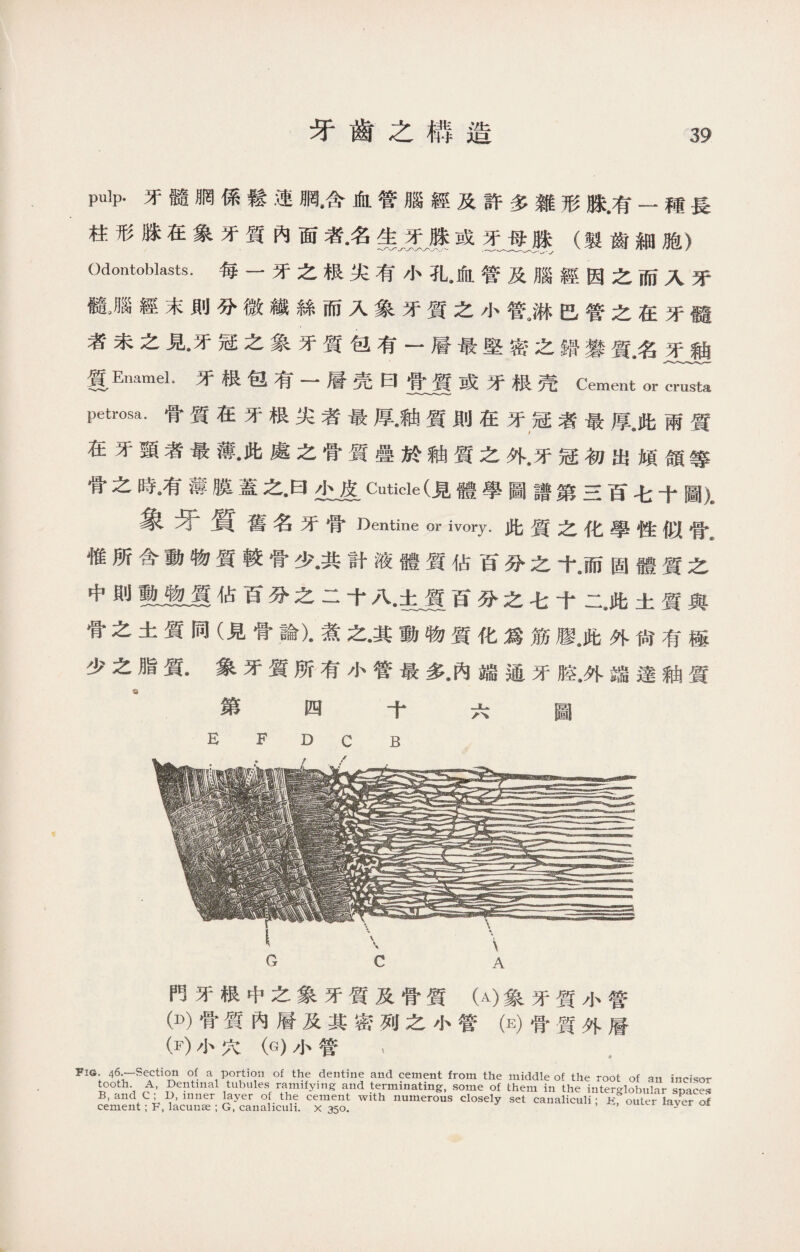 牙齒之構造 39
pulp. 牙髓胸係鬆連胸.含血管腦經及許多雜形脎.有一種長
柱形脎在象牙質內面者.名生牙脎或牙母脎 (製齒細胞)
Odontoblasts. 每一牙之根尖有小孔.血管及腦經因之而入牙
髓.腦經末則分微纖絲而入象牙質之小管.淋巴管之在牙髓
者未之見.牙冠之象牙質包有一層最堅密之鎅礬質.名牙釉
質 Enamel. 牙根包有一層壳曰骨質或牙根壳 Cement or crusta
petrosa. 骨質在牙根尖者最厚.釉質則在牙冠者最厚.此兩質
在牙頸者最薄.此處之骨質疊於釉質之外.牙冠初出頄頷等
骨之時.有薄膜蓋之.曰小皮 Cuticle (見體學圖譜第三百七十圖).
象牙質 舊名牙骨 Dentine or ivory. 此質之化學性似骨.
惟所含動物質較骨少.共計液體質佔百分之十.而固體質之
中則動物質佔百分之二十八.土質百分之七十二.此土質與
骨之土質同(見骨論). 煮之.其動物質化爲筋膠.此外尙有極
少之脂質. 象牙質所有小管最多.內端通牙腔.外端達釉質
第四十六圖
E F D C B
G C A
門牙根中之象牙質及骨質 (A)象牙質小管
(D)骨質內層及其密列之小管 (E)骨質外層
(F)小穴 (G)小管
FIG. 46.—Section of a portion of the dentine and cement from the middle of the root of an incisor
tooth. A, Dentinal tubules ramifying and terminating, some of them in the interglobular spaces
B, and C; D, inner layer of the cement with numerous closely set canaliculi; E, outer layer of
cement; F, lacunæ; G, canaliculi. × 350.